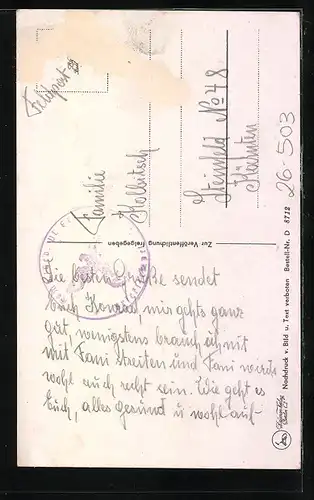 Feldpost
Familie
Kollitsch
Steinfeld No 48
Kärnten
26-503
Zur Veröffentlichung freigegeben
Nachdruck v. Bild u. Text verboten Bestell-Nr. D 8712
Die besten Grüße sendet
Euch Konrad, mir gehts ganz
gut, wenigstens brauch ich nit
mit Fani streiten und Fani werds
wohl auch recht sein. Wie geht es
Euch, alles gesund u wohl auf-